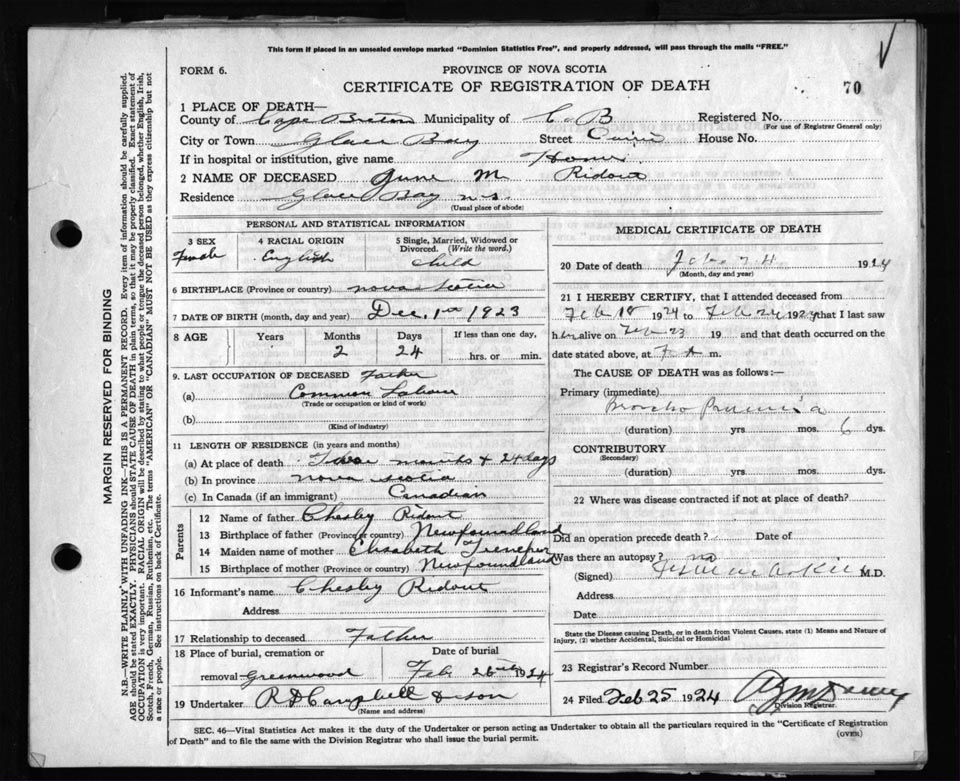 This form if placed in an unsealed envelope marked "Dominion Statistics Free", and properly addressed, will pass through the mails "FREE."
FORM 6.
PROVINCE OF NOVA SCOTIA
CERTIFICATE OF REGISTRATION OF DEATH
70
1 PLACE OF DEATH—
County of Cape Breton Municipality of C. B Registered No.
(For use of Registrar General only)
City or Town Glace Bay Street House No.
If in hospital or institution, give name Home
2 NAME OF DECEASED June M. Ridout
Residence Glace Bay N.S.
(Usual place of abode)
PERSONAL AND STATISTICAL INFORMATION
3 SEX 4 RACIAL ORIGIN 5 Single, Married, Widowed or Divorced. (Write the word.)
Female English child
6 BIRTHPLACE (Province or country) Nova Scotia
7 DATE OF BIRTH (month, day and year) Dec. 1st 1923
8 AGE Years Months Days If less than one day,
2 24 hrs. or min.
9. LAST OCCUPATION OF DECEASED Father
(a) Common Labour
(Trade or occupation or kind of work)
(b)
(Kind of industry)
11 LENGTH OF RESIDENCE (in years and months)
(a) At place of death Two months & 24 days
(b) In province Nova Scotia
(c) In Canada (if an immigrant) Canadian
Parents
12 Name of father Chesley Ridout
13 Birthplace of father (Province or country) Newfoundland
14 Maiden name of mother Elisabeth
15 Birthplace of mother (Province or country) Newfoundland
16 Informant's name Chesley Ridout
Address
17 Relationship to deceased Father
18 Place of burial, cremation or removal Greenwood Date of burial Feb 26th 1924
19 Undertaker R D Campbell & son
(Name and address)
MEDICAL CERTIFICATE OF DEATH
20 Date of death Feb. 24 1924
(Month, day and year)
21 I HEREBY CERTIFY, that I attended deceased from
Feb 18 1924 to Feb 24 1924 that I last saw
her alive on Feb 23 19 and that death occurred on the
date stated above, at 7 A m.
The CAUSE OF DEATH was as follows:—
Primary (immediate)
Broncho Pneumonia
(duration) yrs. mos. 6 dys.
CONTRIBUTORY
(Secondary)
(duration) yrs. mos. dys.
22 Where was disease contracted if not at place of death?
Did an operation precede death? Date of
Was there an autopsy? no
(Signed) M.D.
Address
Date
State the Disease causing Death, or in death from Violent Causes. state (1) Means and Nature of Injury, (2) whether Accidental, Suicidal or Homicidal
23 Registrar's Record Number
24 Filed Feb 25 1924
Division Registrar.
SEC. 46—Vital Statistics Act makes it the duty of the Undertaker or person acting as Undertaker to obtain all the particulars required in the "Certificate of Registration
of Death" and to file the same with the Division Registrar who shall issue the burial permit.
(OVER)
MARGIN RESERVED FOR BINDING
N.B.—WRITE PLAINLY WITH UNFADING INK—THIS IS A PERMANENT RECORD. Every item of information should be carefully supplied.
AGE should be stated EXACTLY. PHYSICIANS should STATE CAUSE OF DEATH in plain terms, so that it may be properly classified. Exact statement of
OCCUPATION is very important. RACIAL ORIGIN will be described by stating to what people or tongue the deceased person belonged, whether English, Irish,
Scotch, French, German, Russian, Ruthenian, etc. The terms "AMERICAN" OR "CANADIAN" MUST NOT BE USED as they express citizenship but not
a race or people. See instructions on back of Certificate.